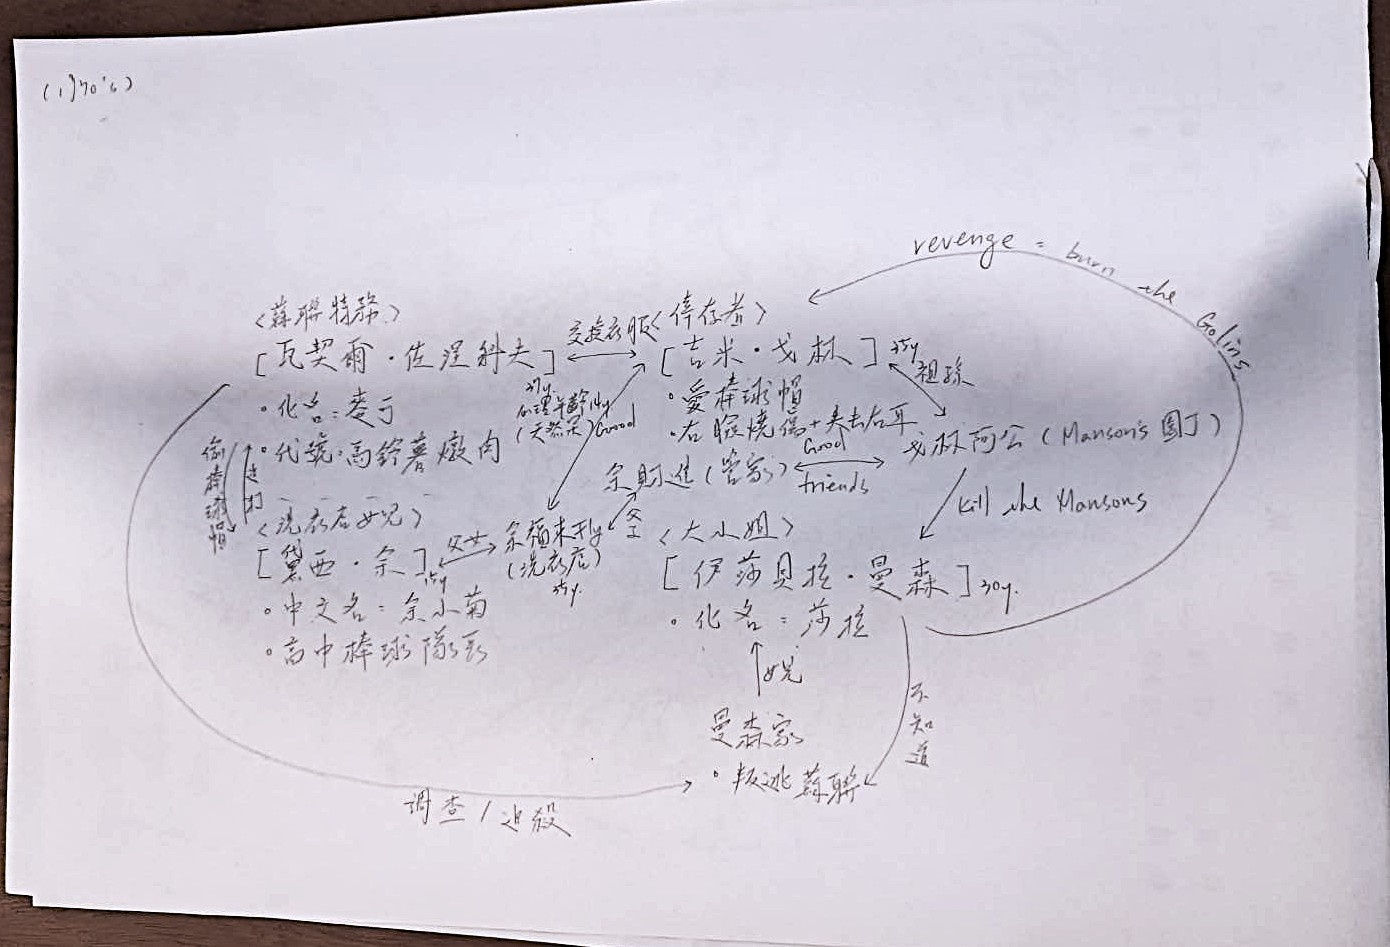 (1970's)
revenge = burn the Golins
<蘇聯特務>
[瓦契爾·佐涅科夫]
·化名:麥可
·代號:馬鈴薯燉肉
交換衣服
<倖存者>
[吉米·戈林] 35y
·愛棒球帽
·右臉燒傷+失去右耳
祖孫
心理年齡14y
(天然呆)
Good
余財進(管家)
Good
friends
戈林阿公(Manson's 園丁)
kill the Mansons
偷棒球帽
追打
<洗衣店女兒>
[黛西·余]
·中文名:余小菊
·高中棒球隊長
父女
余福來
(洗衣店)
35y.
父子
<大小姐>
[伊莎貝拉·曼森] 30y.
·化名:莎拉
女兒
曼森家
·叛逃蘇聯
不知道
調查/追殺